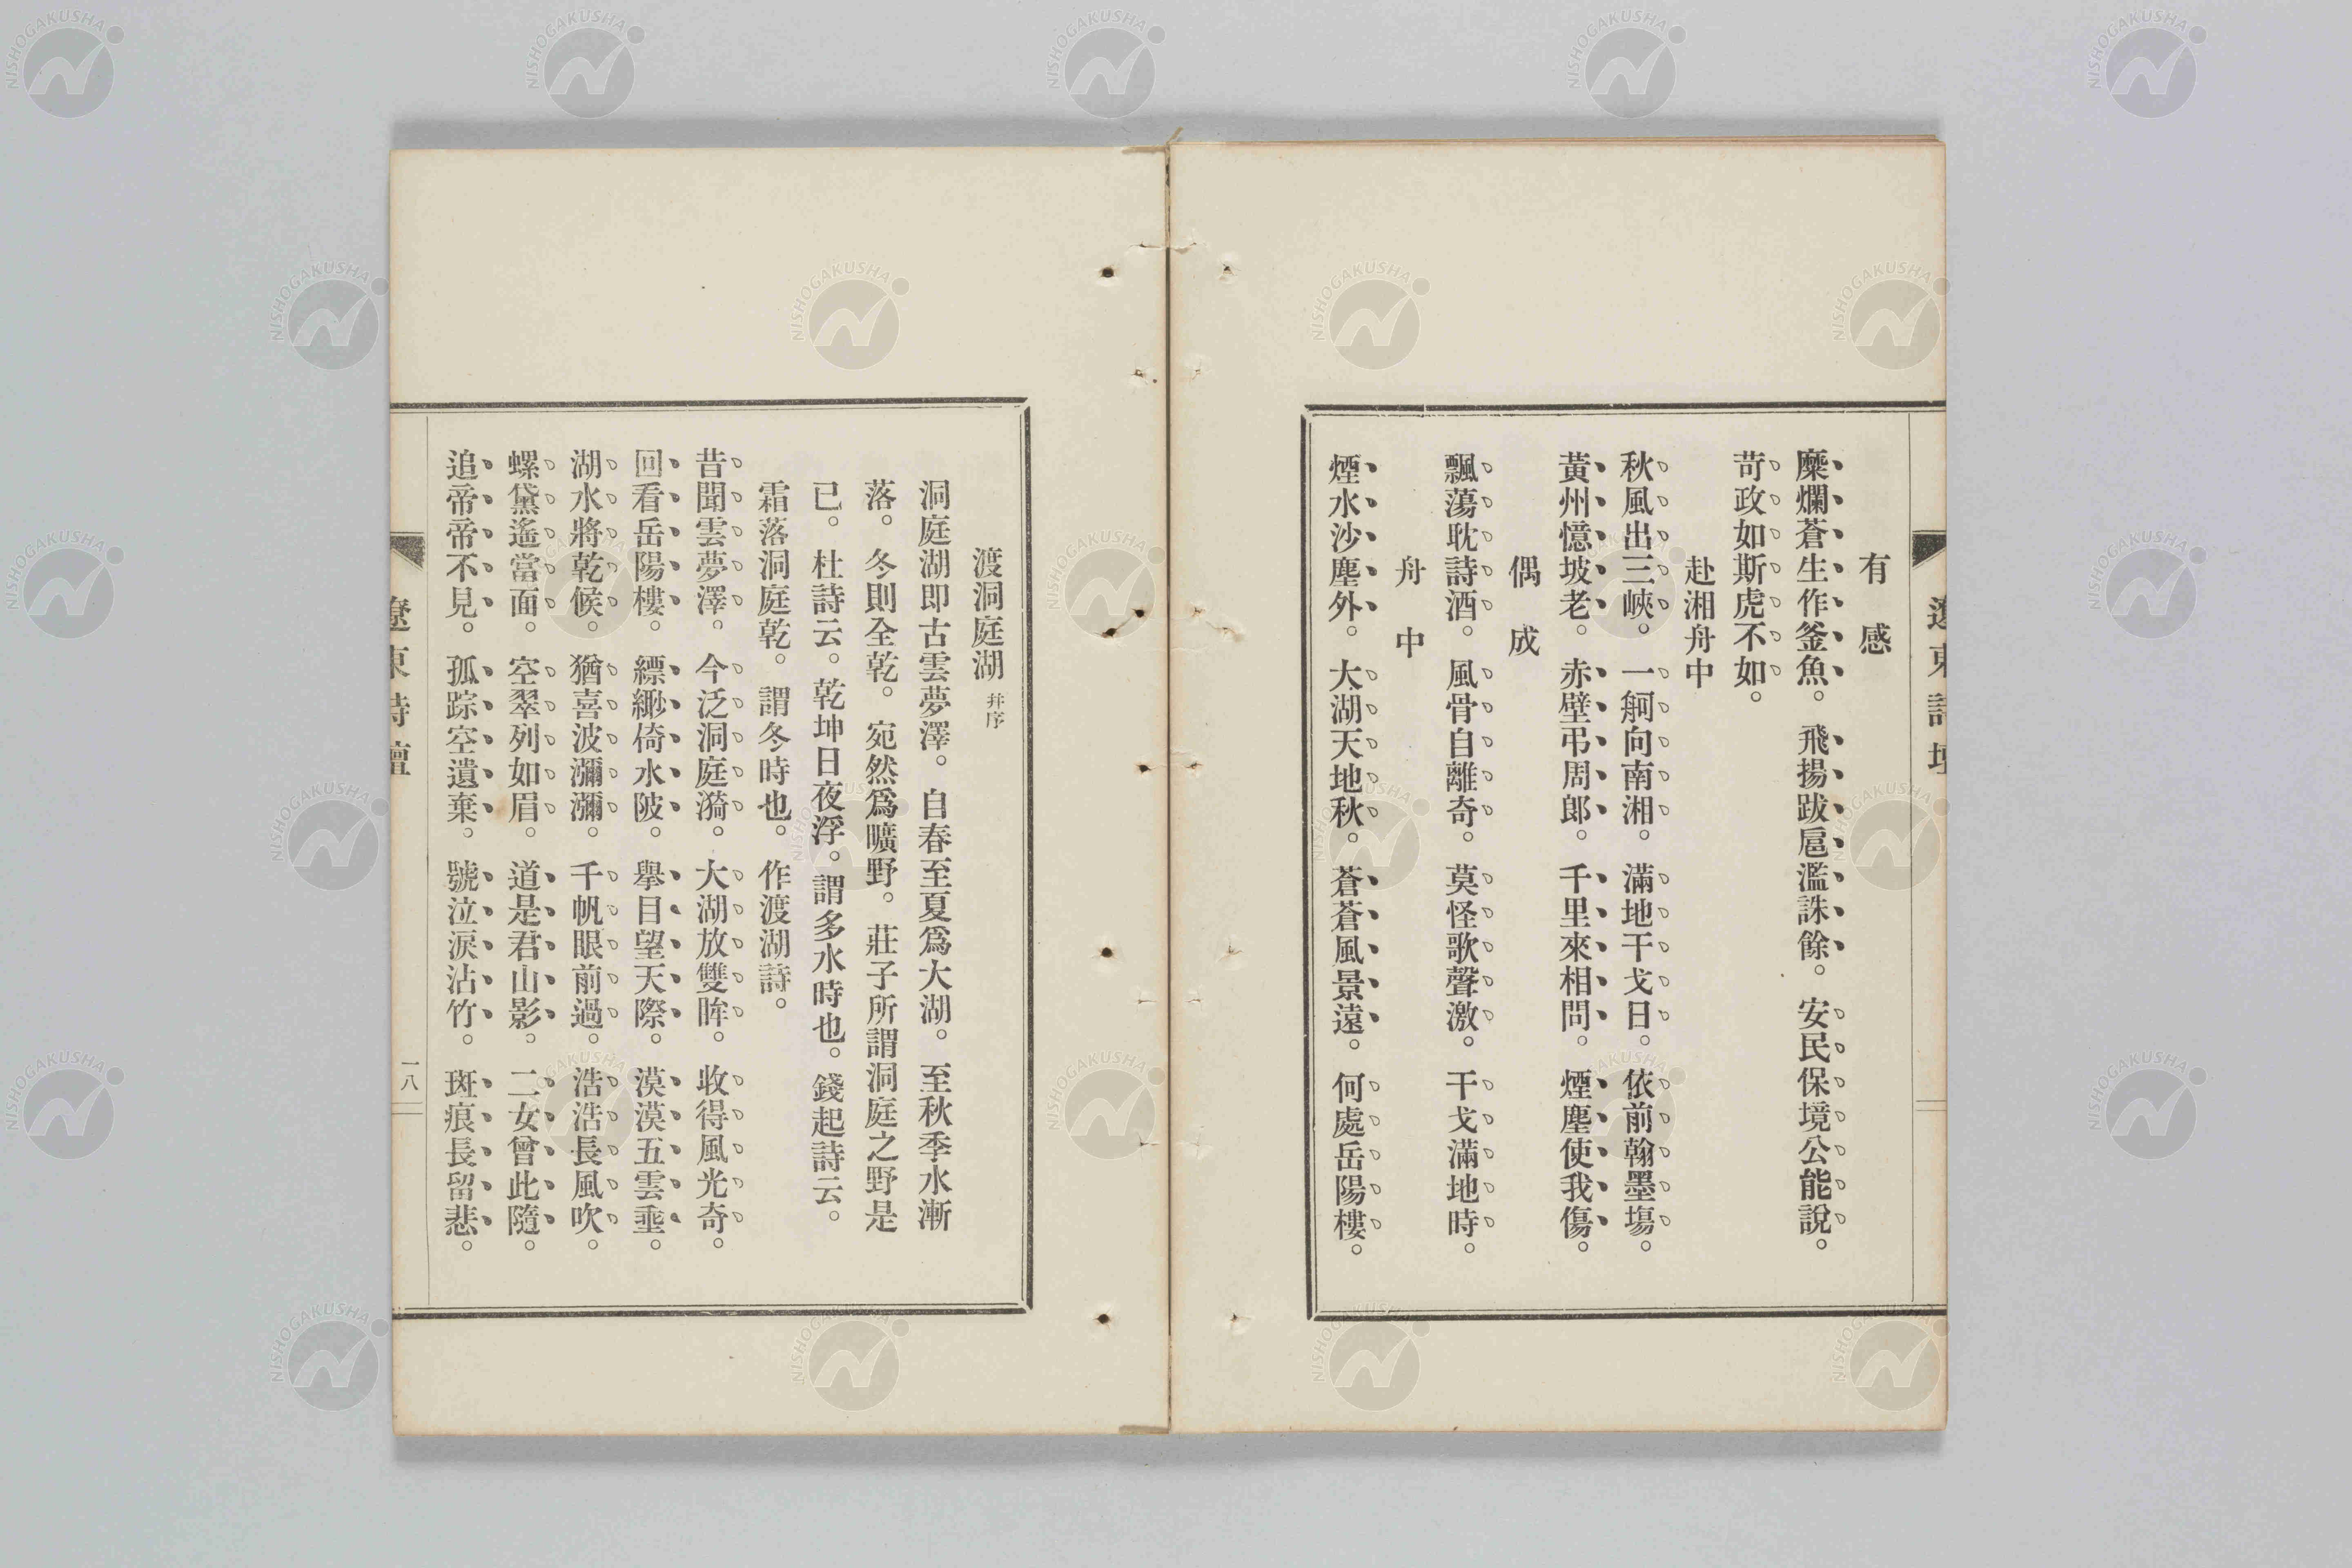 遼東詩壇
有感
糜爛蒼生作釜魚。飛揚跋扈濫誅餘。安民保境公能說。
苛政如斯虎不如。
赴湘舟中
秋風出三峽。一舸向南湘。滿地干戈日。依前翰墨塲。
黃州憶坡老。赤壁弔周郎。千里來相問。煙塵使我傷。
偶成
飄蕩耽詩酒。風骨自離奇。莫怪歌聲激。干戈滿地時。
舟中
煙水沙塵外。大湖天地秋。蒼蒼風景遠。何處岳陽樓。
渡洞庭湖 幷序
洞庭湖即古雲夢澤。自春至夏爲大湖。至秋季水漸
落。冬則全乾。宛然爲曠野。莊子所謂洞庭之野是
已。杜詩云。乾坤日夜浮。謂多水時也。錢起詩云。
霜落洞庭乾。謂冬時也。作渡湖詩。
昔聞雲夢澤。今泛洞庭漪。大湖放雙眸。收得風光奇。
回看岳陽樓。縹緲倚水陂。擧目望天際。漠漠五雲垂。
湖水將乾候。猶喜波瀰瀰。千帆眼前過。浩浩長風吹。
螺黛遙當面。空翠列如眉。道是君山影。二女曾此隨。
追帝帝不見。孤踪空遺棄。號泣淚沾竹。斑痕長留悲。
遼東詩壇
一八
NISHOGAKUSHA